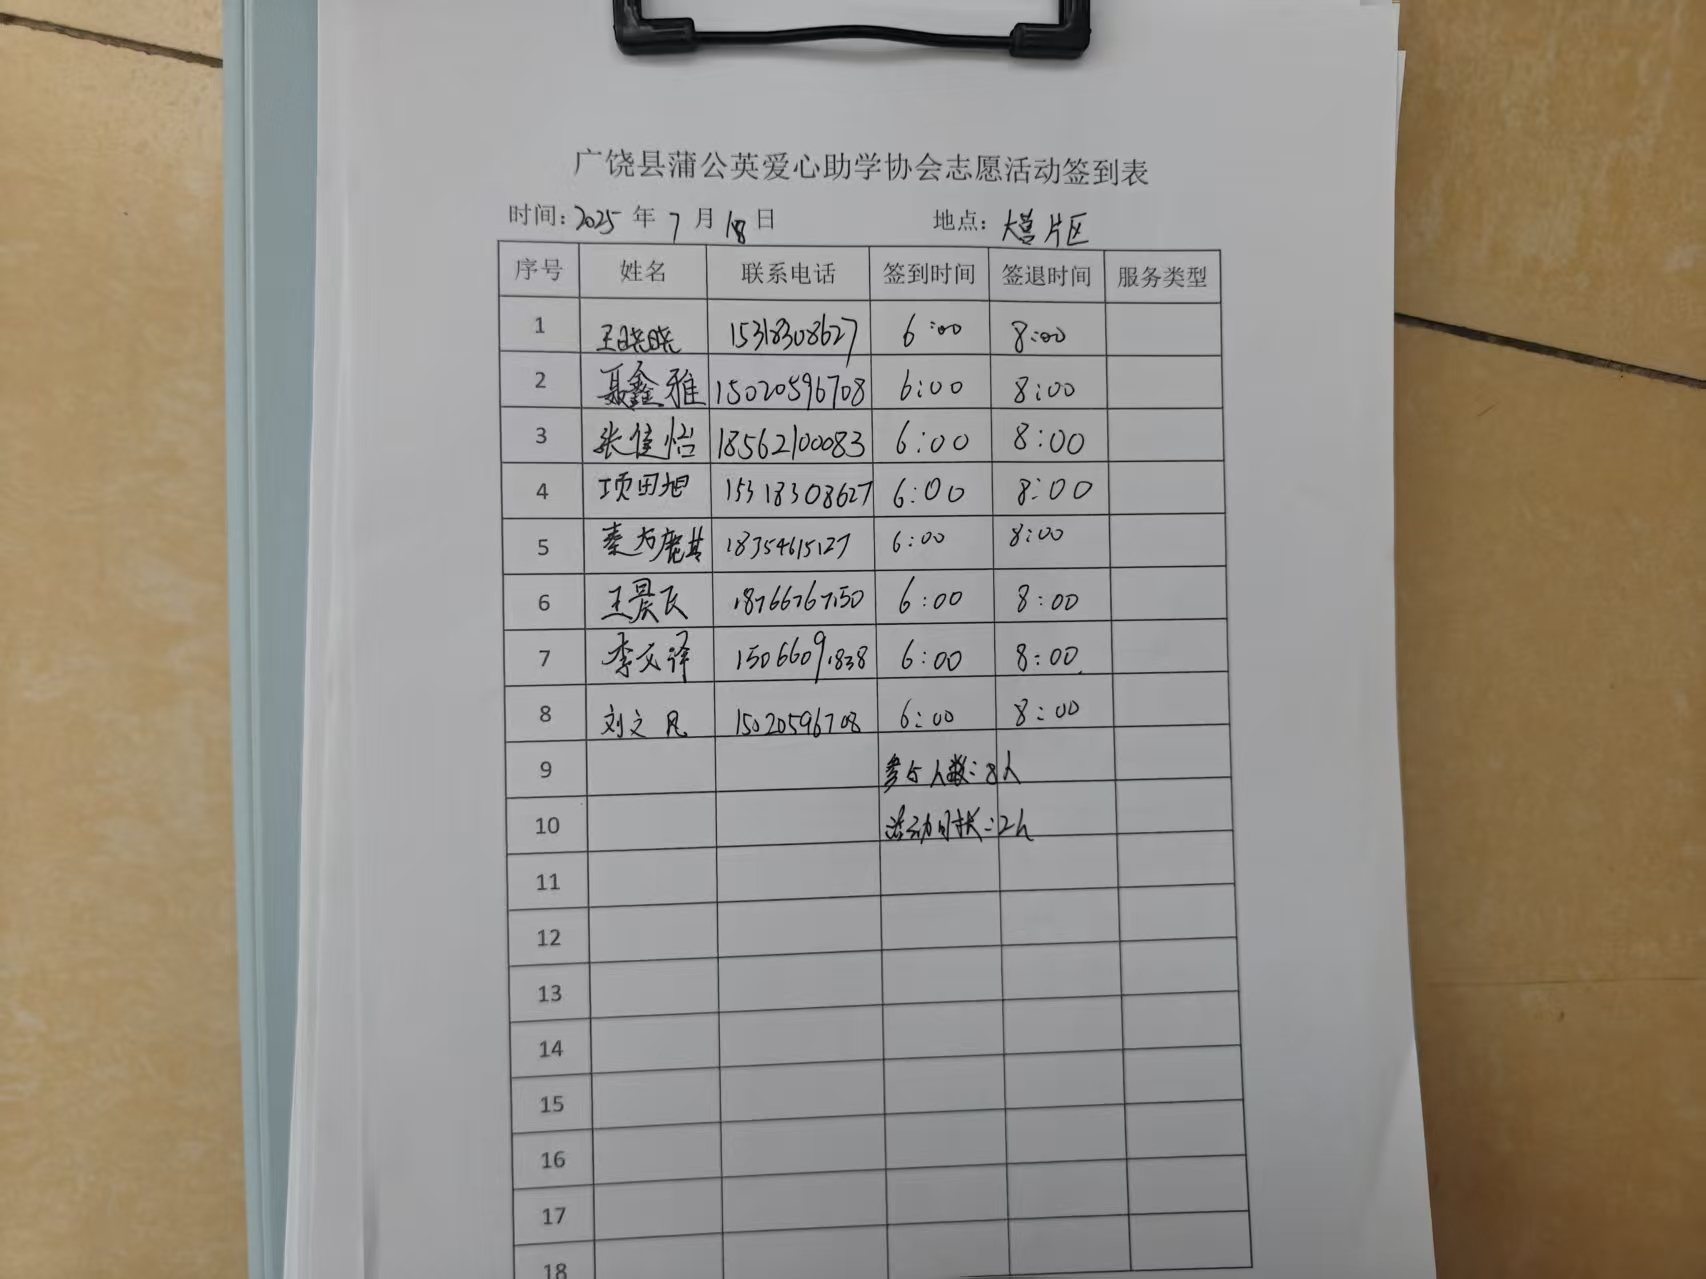 广饶县蒲公英爱心助学协会志愿活动签到表
时间：2025 年 7 月 18 日 地点：大营片区
序号 姓名 联系电话 签到时间 签退时间 服务类型
1 王晓晓 15318308627 6:00 8:00
2 聂鑫雅 15020596708 6:00 8:00
3 张佳怡 18562100083 6:00 8:00
4 项田旭 15318308627 6:00 8:00
5 秦 18354615127 6:00 8:00
6 王晨 18766767150 6:00 8:00
7 李文译 15066091838 6:00 8:00
8 刘文 15020596708 6:00 8:00
9 参与人数：8人
10 活动时长：2h
11
12
13
14
15
16
17
18